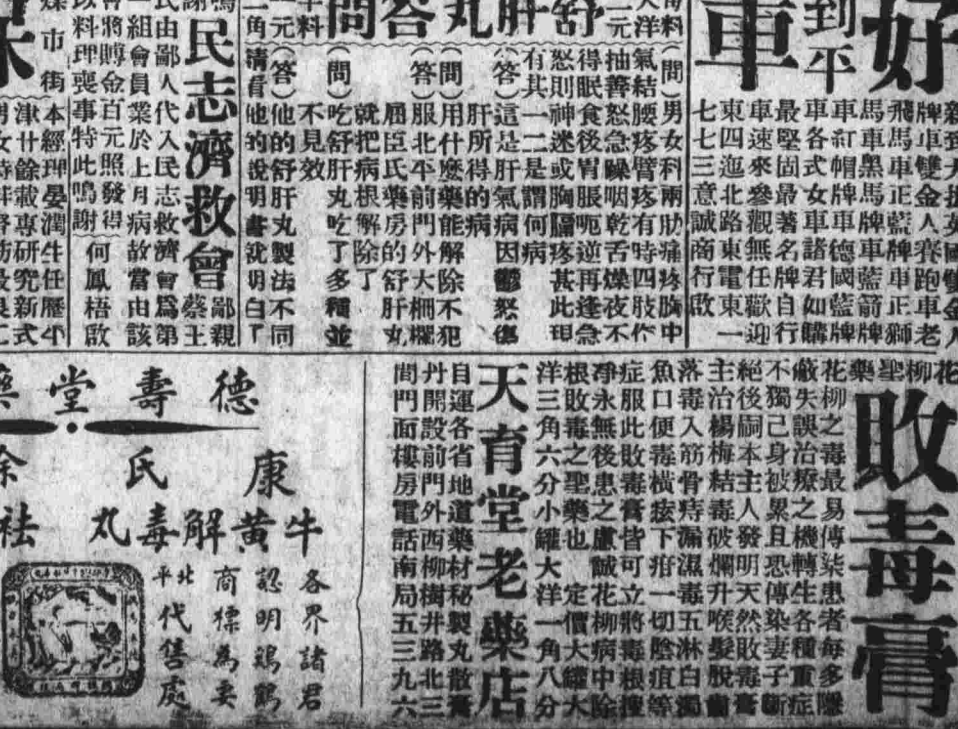 好
到平
車
新到大批英國雙金人
牌車雙金人賽跑車老
飛馬車正藍牌車正獅
馬車黑馬牌車藍箭牌
車紅帽牌車德國藍牌
車各式女車諸君如購
最堅固最著名牌自行
車速來參觀無任歡迎
東四迤北路東電東一
七七三意誠商行啟
舒肝丸答問
(問)男女科兩肋痛疼胸中
氣結腰疼臂疼有時四肢作
抽善怒急躁咽乾舌燥夜不
得眠食後胃脹呃逆再逢急
怒則神迷或胸膈疼甚此現
有其一二是謂何病
(答)這是肝氣病因鬱怒傷
肝所得的病
(問)用什麽藥能解除不犯
(答)服北平前門外大柵欄
屈臣氏藥房的舒肝丸
就把病根解除了
(問)吃舒肝丸吃了多種並
不見效
(答)他的舒肝丸製法不同
清看他的說明書說明白了
民志濟救會
鄙親
蔡王
氏由鄙人代入民志救濟會爲第
一組會員業於上月病故當由該
會將賻金百元照發得
以料理喪事特此鳴謝
何鳳梧啟
市街
本經理晏潤生任歷小
津廿餘載專研究新式
花柳聖藥
敗毒膏
花柳之毒最易傳柒患者每多隱
蔽失誤治療之機轉生各種重症
不獨己身被累且恐傳染妻子斷
絕後嗣本主人發明天然敗毒膏
主治楊梅結毒破爛升喉髮脫齒
落毒入筋骨痔漏濕毒五淋白濁
魚口便毒橫痃下疳一切陰疽等
症服此敗毒膏皆可立將毒根搜
凈永無後患之慮誠花柳病中除
根敗毒之聖藥也 定價大罐大
洋三角六分小罐大洋一角八分
天育堂老藥店
自運各省地道藥材秘製丸散膏
丹開設前門外西柳樹井路北三
間門面樓房電話南局五三九六
德壽堂藥
康氏
牛黃解毒丸
各界諸君
認明鷄鶴
商標為要
北平代售處